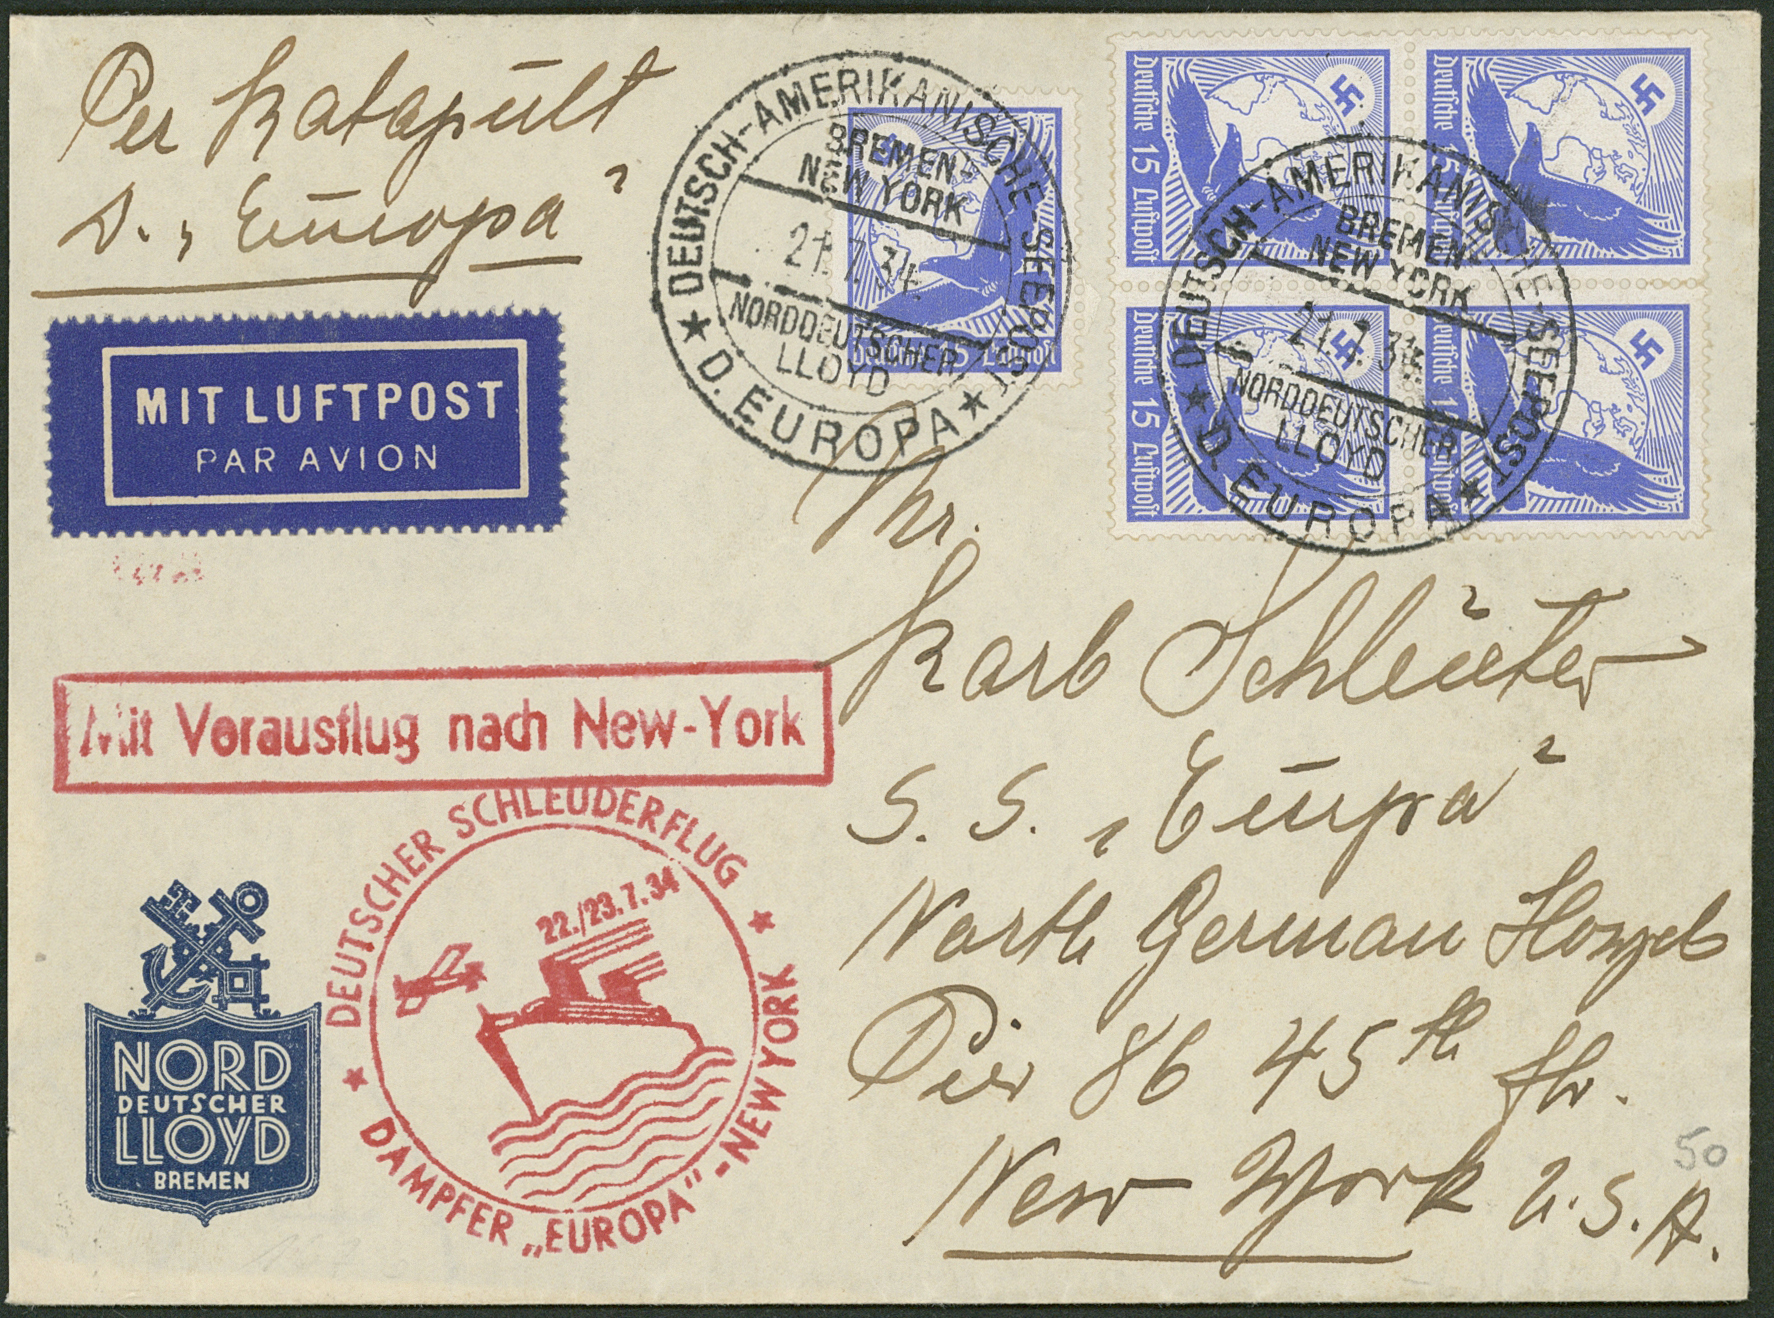 Per Katapult
D. „Europa"
MIT LUFTPOST
PAR AVION
DEUTSCH-AMERIKANISCHE-SEEPOST
BREMEN-
NEW YORK
21.7.34.
NORDDEUTSCHER
LLOYD
★ D. EUROPA ★
Deutsche 15 Luftpost
Deutsche 15 Luftpost
Deutsche 15 Luftpost
Deutsche 15 Luftpost
DEUTSCH-AMERIKANISCHE-SEEPOST
BREMEN-
NEW YORK
21.7.34.
NORDDEUTSCHER
LLOYD
★ D. EUROPA ★
Hr.
Karl Schlüter
S. S. „Europa"
North German Lloyd
Pier 86 45th Str.
New York U.S.A.
50
Mit Vorausflug nach New-York
DEUTSCHER SCHLEUDERFLUG
22./23.7.34
★ DAMPFER „EUROPA"-NEW YORK ★
NORD
DEUTSCHER
LLOYD
BREMEN